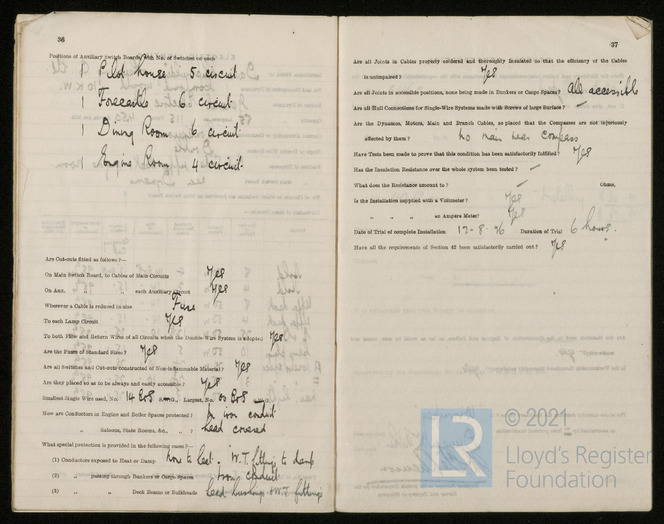 36
Positions of Auxiliary Switch Boards, with No. of Switches on each
1 Pilot house 5 circuit
1 Forecastle 6 circuit
1 Dining Room 6 circuit
Engine Room 4 circuit
Are Cut-outs fitted as follows?—
On Main Switch Board, to Cables of Main Circuits Yes
On Aux. " " each Auxiliary Circuit Yes
Wherever a Cable is reduced in size Fuse
To each Lamp Circuit Yes
To both Flow and Return Wires of all Circuits when the Double-Wire System is adopted Yes
Are the Fuses of Standard Sizes? Yes
Are all Switches and Cut-outs constructed of Non-inflammable Material? Yes
Are they placed so as to be always and easily accessible? Yes
Smallest Single Wire used, No. 14 B&S Largest, No. 00 B&S
How are Conductors in Engine and Boiler Spaces protected? In iron conduit
" Saloons, State Rooms, &c., " ? Lead covered
What special protection is provided in the following cases?—
(1) Conductors exposed to Heat or Damp none to heat. W.T. fittings to damp
(2) " passing through Bunkers or Cargo Spaces Iron conduit
(3) " " Deck Beams or Bulkheads Lead bushings & W.T. fittings
37
Are all Joints in Cables properly soldered and thoroughly insulated so that the efficiency of the Cables
is unimpaired? Yes
Are all Joints in accessible positions, none being made in Bunkers or Cargo Spaces? All accessible
Are all Hull Connections for Single-Wire Systems made with Screws of large Surface? —
Are the Dynamos, Motors, Main and Branch Cables, so placed that the Compasses are not injuriously
affected by them? No main near compass
Have Tests been made to prove that this condition has been satisfactorily fulfilled? Yes
Has the Insulation Resistance over the whole system been tested? —
What does the Resistance amount to? — Ohms.
Is the Installation supplied with a Voltmeter? Yes
" " " an Ampère Meter? Yes
Date of Trial of complete Installation 8 Duration of Trial 6 hours.
Have all the requirements of Section 42 been satisfactorily carried out? Yes
© 2021
LR
Lloyd's Register
Foundation